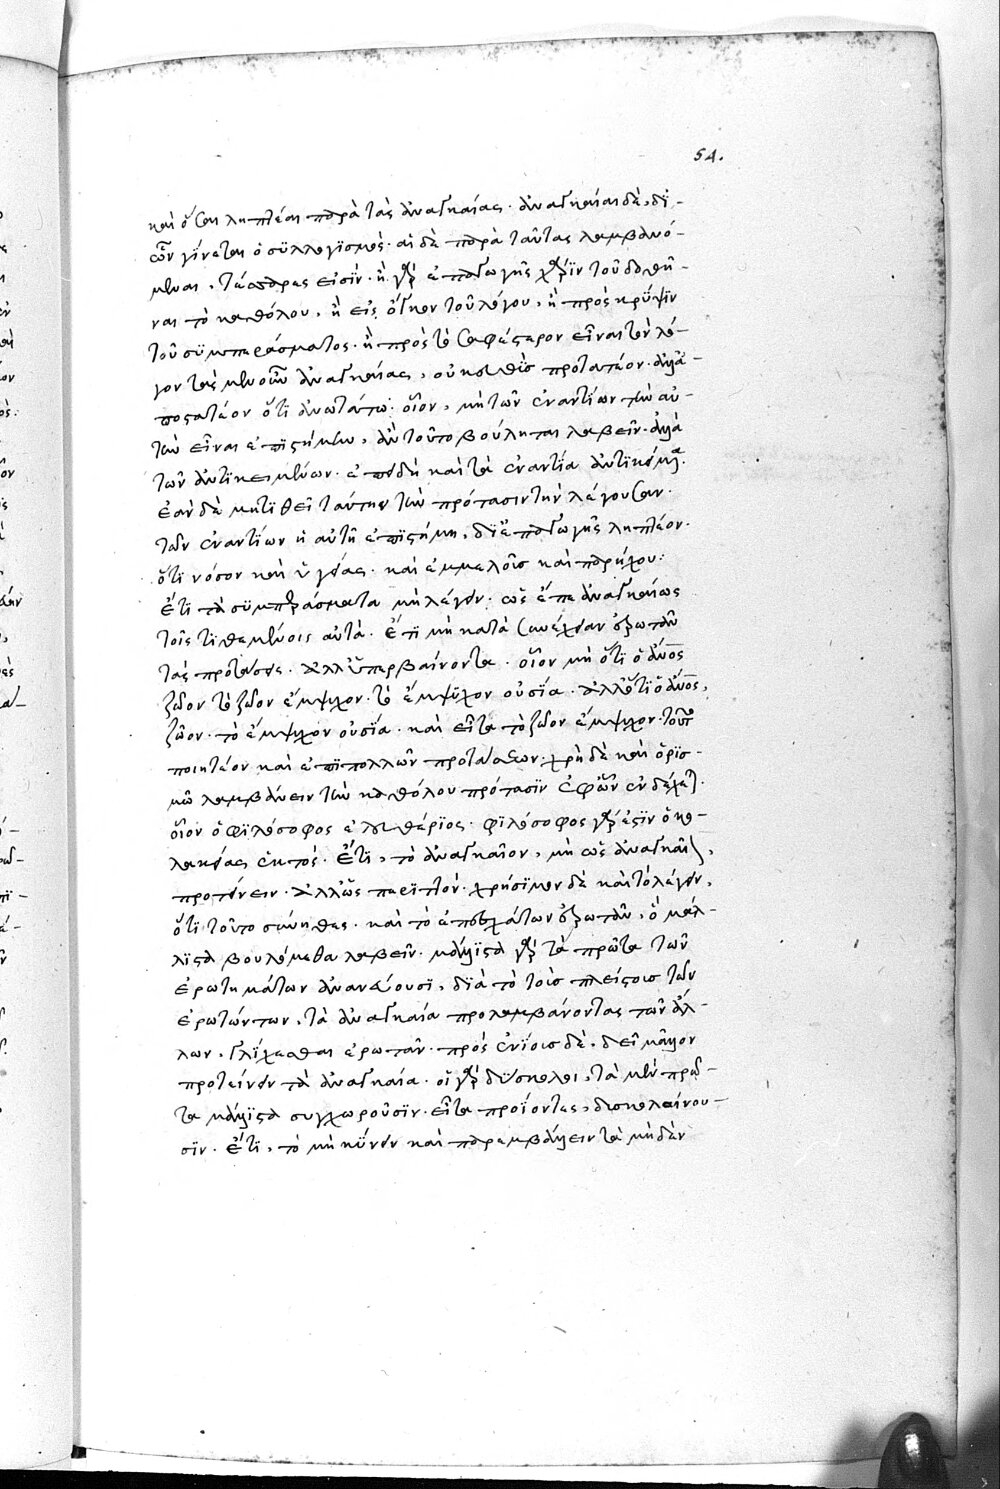 54.
καὶ ὅσαι ληπτέαι παρὰ τὰς ἀναγκαίας. ἀναγκαῖαι δὲ, δι-
ὧν γίνεται ὁ συλλογισμός. αἱ δὲ παρὰ ταῦτας λαμβανό-
μεναι, τέσσαρες εἰσίν. ἢ γὰρ ἐπαγωγῆς χάριν τοῦ δοθῆ-
ναι τὸ καθόλου, ἢ εἰς ὄγκον τοῦ λόγου, ἢ πρὸς κρύψιν
τοῦ συμπεράσματος. ἢ πρὸς τὸ σαφέστερον εἶναι τὸν λό-
γον τὰς μὲν οὖν ἀναγκαίας, οὐκ εὐθὺς προτατέον. ἀλλ᾽ ἀ-
ποστατέον ὅτι ἀνωτάτω. οἷον, μὴ τῶν ἐναντίων τὴν αὐ-
τὴν εἶναι ἐπιστήμην, ἂν τοῦτο βούληται λαβεῖν. ἀλλὰ
τῶν ἀντικειμένων. ἐπειδὴ καὶ τὰ ἐναντία ἀντικείμενα.
ἐὰν δὲ μὴ τιθεῖ ταύτην τὴν πρότασιν τὴν λέγουσαν.
τῶν ἐναντίων ἡ αὐτὴ ἐπιστήμη, δι᾽ ἐπαγωγῆς ληπτέον.
ὅτι νόσου καὶ ὑγείας. καὶ ἐμμελοῦς καὶ παρήχου:
ἔτι τὰ συμπεράσματα μὴ λέγειν. ὡς ἕπεται ἀναγκαίως
τοῖς τιθεμένοις αὐτά. ἔτι μὴ κατὰ συνέχειαν ἐρωτᾶν
τὰς προτάσεις. ἀλλ᾽ ὑπερβαίνοντα. οἷον μὴ ὅτι ὁ ἄνος
ζῶον τὸ ζῶον ἔμψυχον. τὸ ἔμψυχον οὐσία. ἀλλ᾽ ὅτι ὁ ἄνος,
ζῶον. τὸ ἔμψυχον οὐσία. καὶ εἶτα τὸ ζῶον ἔμψυχον. τοῦτο
ποιητέον καὶ ἐπὶ πολλῶν προτάσεων: χρὴ δὲ καὶ ὁρισ-
μῶ λαμβάνειν τὴν καθόλου πρότασιν ἐφ᾽ ὧν ἐνδέχεται.
οἷον ὁ φιλόσοφος ἐλευθέριος. φιλόσοφος γάρ ἐστιν ὁ κο-
λακείας ἐκτός. ἔτι, τὸ ἀναγκαῖον, μὴ ὡς ἀναγκαῖον,
προτείνειν. ἀλλ᾽ ὡς περιττόν. χρήσιμον δὲ καὶ τὸ λέγειν,
ὅτι τοῦτο σύνηθες. καὶ τὸ ἐπ᾽ ἐσχάτων ἐρωτᾶν, ὃ μάλ-
λιστα βουλόμεθα λαβεῖν. μάλιστα γὰρ τὰ πρῶτα τῶν
ἐρωτημάτων ἀνανεύουσι, διὰ τὸ τοὺς πλείστους τῶν
ἐρωτώντων, τὰ ἀναγκαῖα προλαμβάνοντας τῶν ἄλ-
λων, γλίχεσθαι ἐρωτᾶν. πρὸς ἐνίους δὲ, δεῖ μᾶλλον
προτείνειν τὰ ἀναγκαῖα. οἱ γὰρ δύσκολοι, τὰ μὲν πρῶ-
τα μάλιστα συγχωροῦσιν. εἶτα προϊόντες, δυσκολαίνου-
σιν. ἔτι, τὸ μηκύνειν καὶ παρεμβάλλειν τὰ μηδὲν